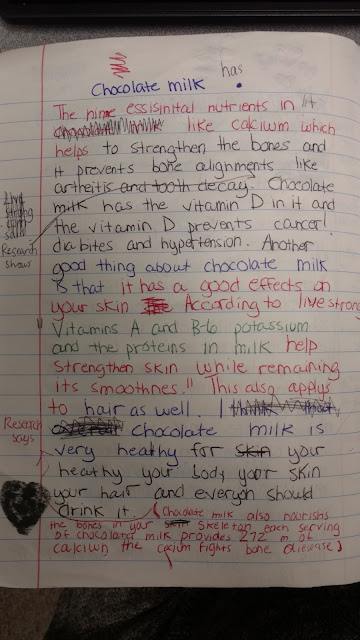 has
Chocolate milk .
The nine essisinital nutrients in it
like calcium which
helps to strengthen the bones and
it prevents bone alignments like
artheitis and tooth decay. Chocolate
milk has the vitamin D in it and
the vitamin D prevents cancer!
diabites and hypertension. Another
good thing about chocolate milk
is that it has a good effects on
your skin According to livestrong
"Vitamins A and B-6 potassium
and the proteins in milk help
strengthen skin while remaining
its smoothnes." This also applys
to hair as well. I think that
overall chocolate milk is
very heathy for skin your
heathy your body your skin
your hair and everyon should
drink it. (Chocolate milk also nourishs
the bones in your skeleton each serving
of chocolate milk provides 272 m of
calciwn the cacium fights bone dieiease)
Live
strong
.com
said
Research
shows
Research
says